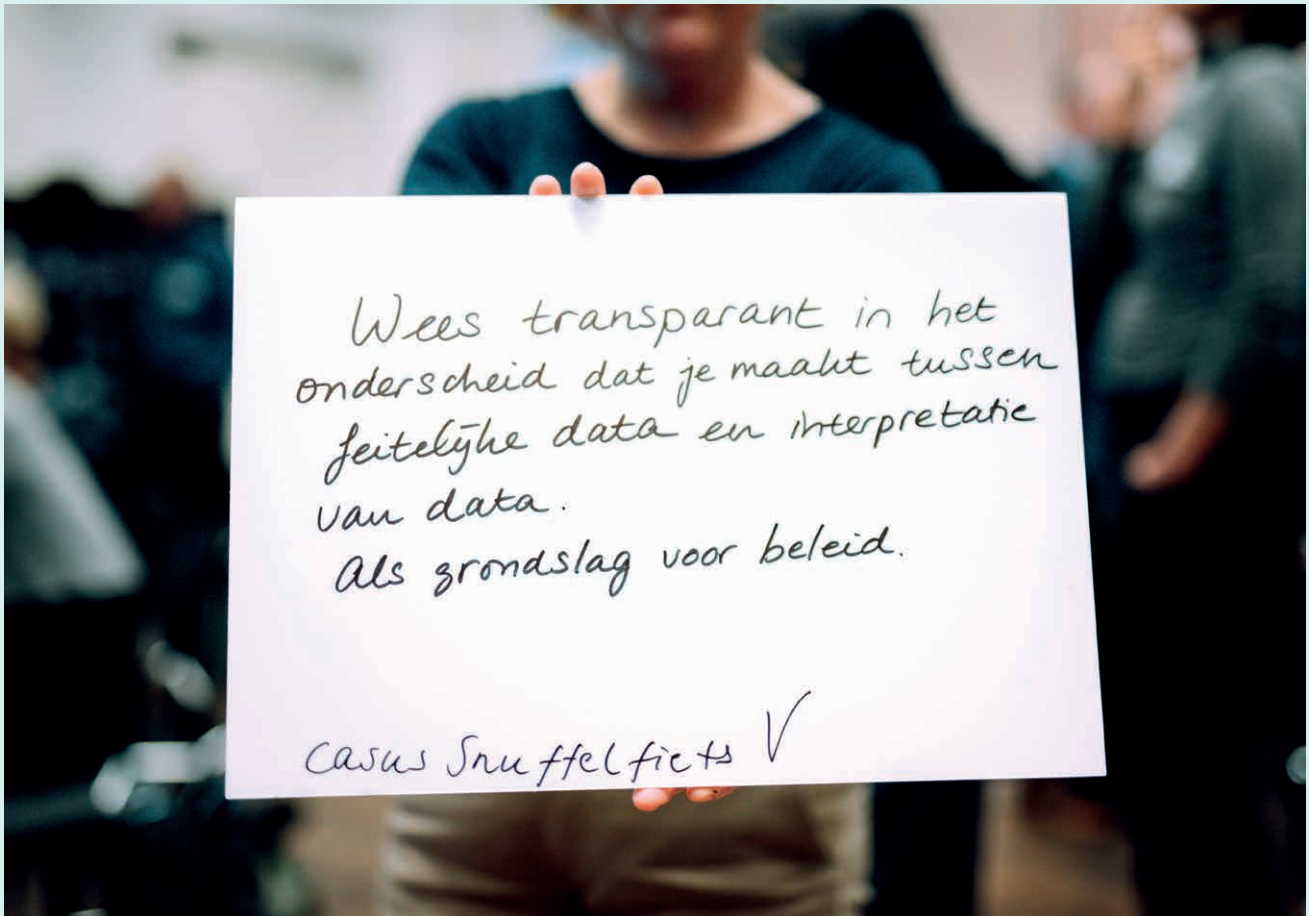 Wees transparant in het
onderscheid dat je maakt tussen
feitelijke data en interpretatie
van data.
Als grondslag voor beleid.
Casus Snuffelfiets √